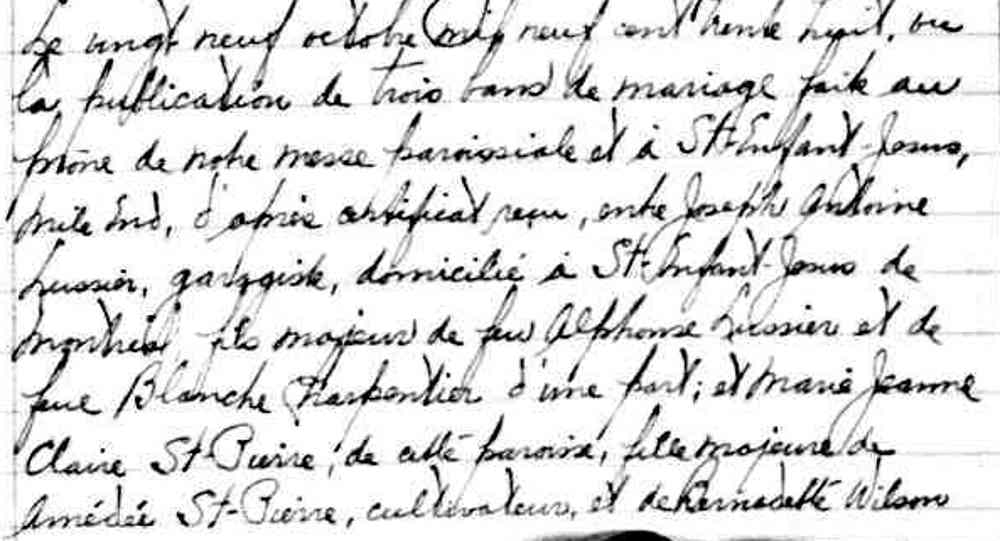 Le vingt neuf octobre mil neuf cent trente huit, vu
la publication de trois bans de mariage faite au
prône de notre messe paroissiale et à St-Enfant-Jesus,
Mile End, d'après certificat reçu, entre Joseph Antoine
Lussier, garagiste, domicilié à St-Enfant-Jesus de
Montréal, fils majeur de feu Alphonse Lussier et de
feue Blanche Charpentier d'une part; et Marie Jeanne
Claire St-Pierre, de cette paroisse, fille majeure de
Amédée St-Pierre, cultivateur, et de Bernadette Wilson